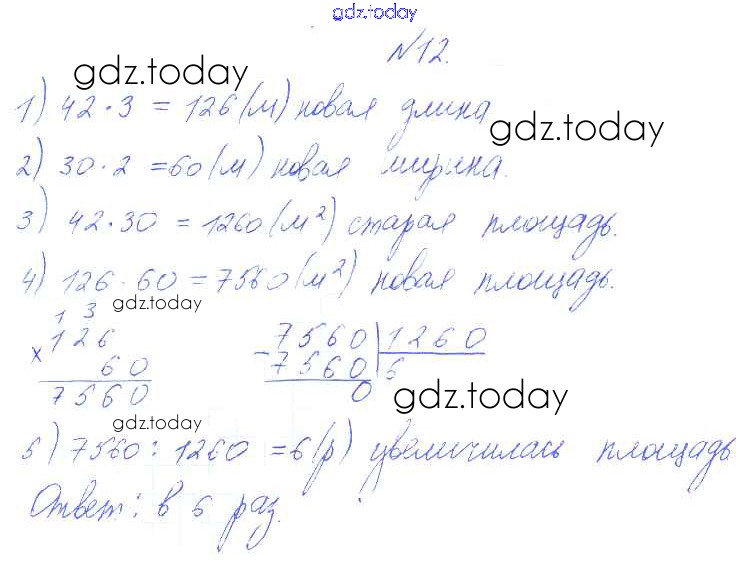 gdz.today
№12.
gdz.today
1) 42·3 = 126 (м) новая длина
gdz.today
2) 30·2 = 60 (м) новая ширина.
3) 42·30 = 1260 (м²) старая площадь.
4) 126·60 = 7560 (м²) новая площадь.
gdz.today
1 3
× 126
60
7560
− 7560 | 1260
7560 | 6
0
gdz.today
gdz.today
5) 7560 : 1260 = 6 (р) увеличилась площадь
Ответ: в 6 раз.